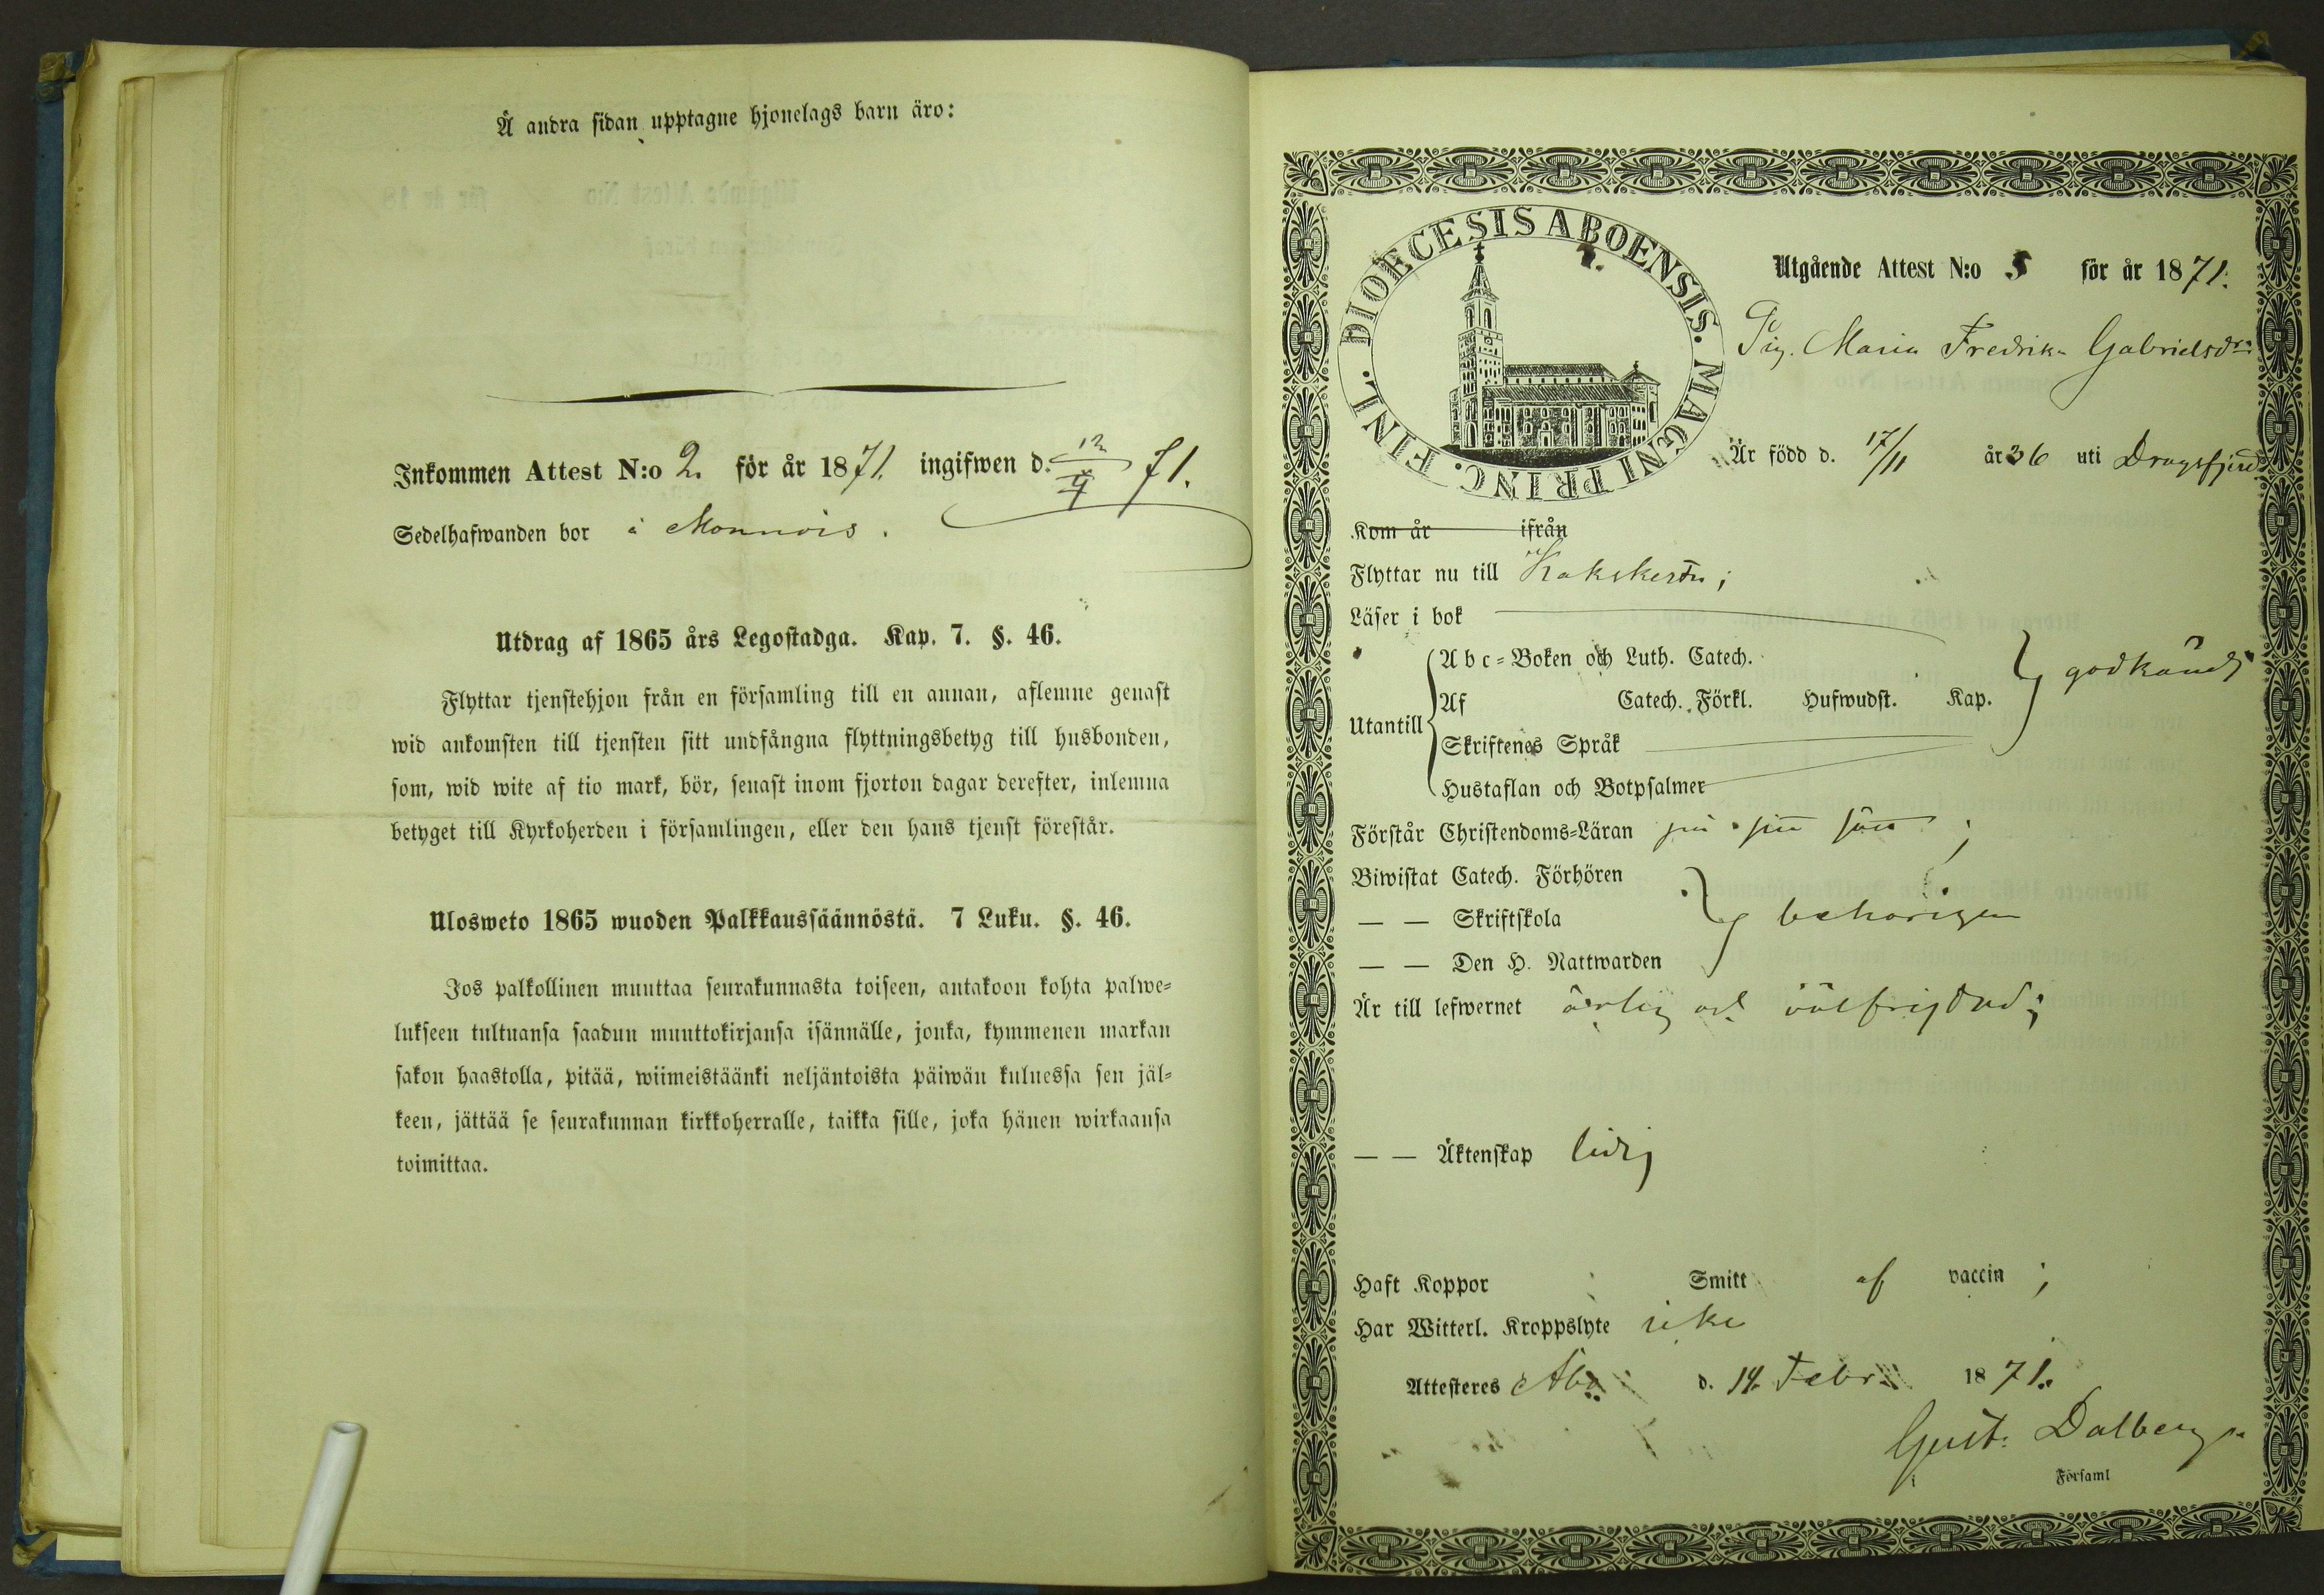 Å andra sidan upptagne hjonelags barn äro:
Inkommen Attest N:o 2. för år 1871. ingifwen d. 12/4 71.
Sedelhafwanden bor å Monnois.
Utdrag af 1865 års Legostadga. Kap. 7. §. 46.
Flyttar tjenstehjon från en församling till en annan, aflemne genast
wid ankomsten till tjensten sitt undfångna flyttningsbetyg till husbonden,
som, wid wite af tio mark, bör, senast inom fjorton dagar derefter, inlemna
betyget till Kyrkoherden i församlingen, eller den hans tjenst förestår.
Ulosweto 1865 wuoden Palkkaussäännöstä. 7 Luku. §. 46.
Jos palkollinen muuttaa seurakunnasta toiseen, antakoon kohta palwe-
lukseen tultuansa saadun muuttokirjansa isännälle, jonka, kymmenen markan
sakon haastolla, pitää, wiimeistäänki neljäntoista päiwän kuluessa sen jäl-
keen, jättää se seurakunnan kirkkoherralle, taikka sille, joka hänen wirkaansa
toimittaa.
DIOECESIS ABOENSIS. MAGNI PRINC. FINL.
2.
Utgående Attest N:o 5 för år 1871.
Pig. Maria Fredrika Gabrielsdr:
Är född d. 17/11 år 36 uti Dragsfjerd
Kom år ifrån
Flyttar nu till Kakskerta;
Läser i bok
Utantill
Abc-Boken och Luth. Catech.
Af Catech. Förkl. Hufwudst. Kap.
godkändt
Skriftenes Språk
Hustaflan och Botpsalmer
Förstår Christendoms-Läran
Biwistat Catech. Förhören
— — Skriftskola behörigen
— — Den H. Nattwarden
Är till lefwernet ärlig och välfrejdad;
— — Äktenskap ledig
Haft Koppor Smitt af vaccin;
Har Witterl. Kroppslyte icke
Attesteras Åbo d. 14. Febr. 1871.
Gust. Dalberg
i Församl